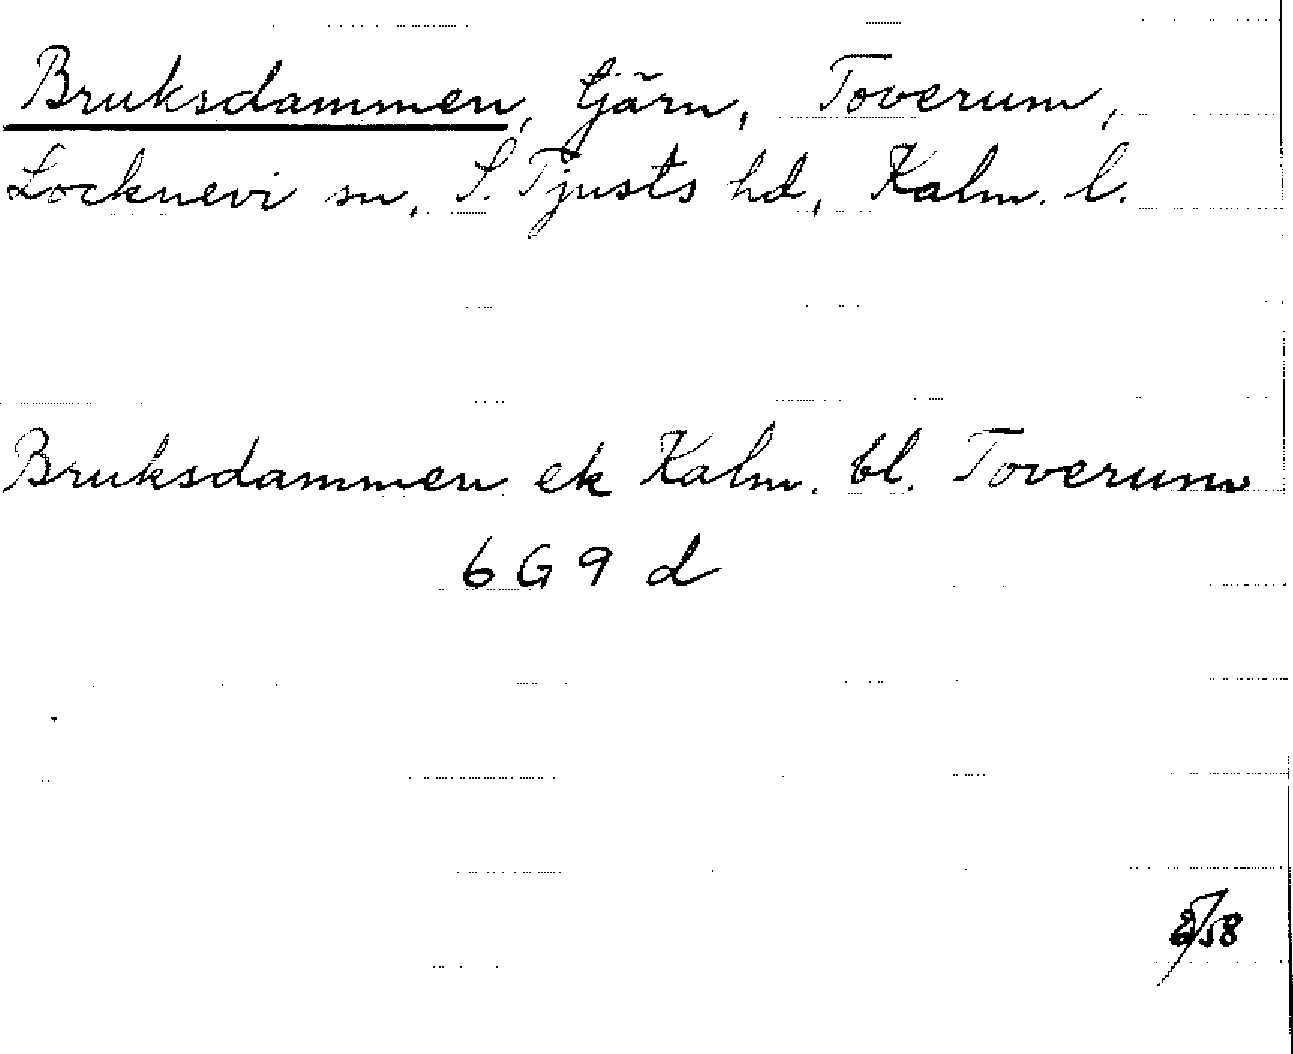 Bruksdammen, tjärn, Toverum,
Locknevi sn, S. Tjusts hd, Kalm. l.
Bruksdammen ek Kalm. bl. Toverum
6 G 9 d